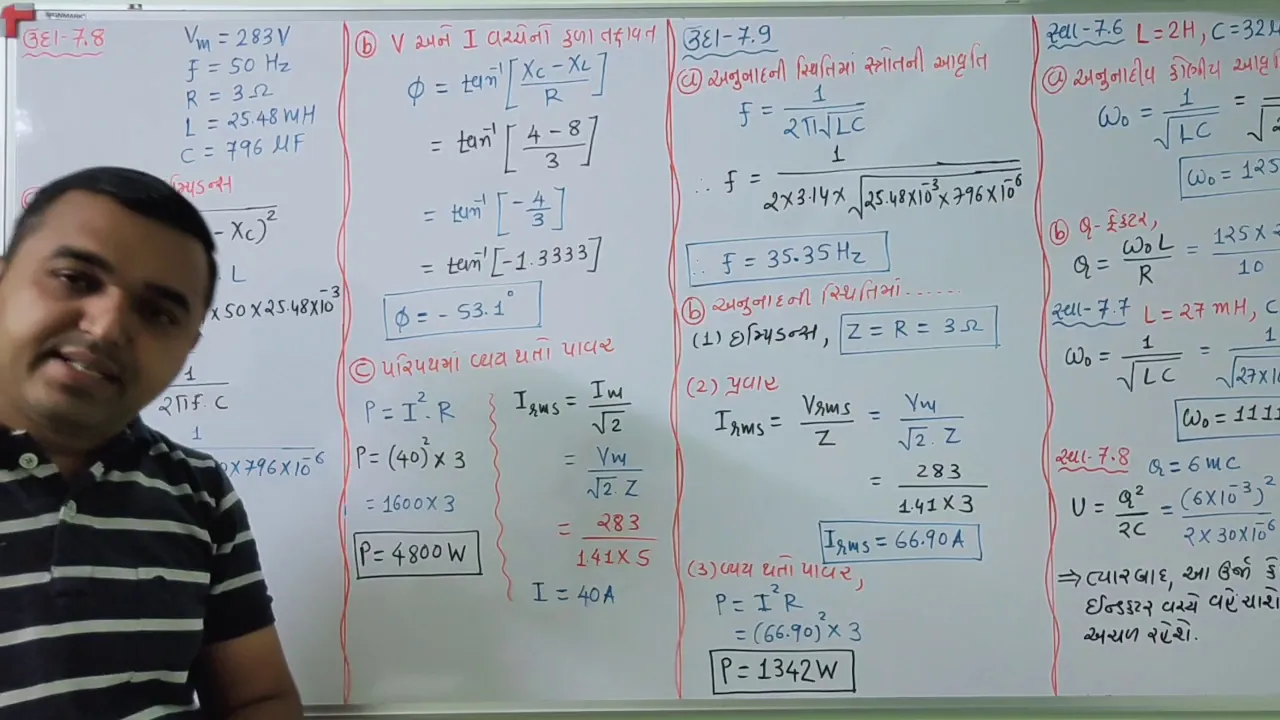 ઉદા-7.8
Vm = 283V
f = 50 Hz
R = 3 Ω
L = 25.48 mH
C = 796 μF
- XC)²
L
x 50 x 25.48x10⁻³
1
2πf. C
1
x796x10⁻⁶
ⓑ V અને I વચ્ચેનો કળા તફાવત
ϕ = tan⁻¹ [XC - XL / R]
= tan⁻¹ [4 - 8 / 3]
= tan⁻¹ [-4/3]
= tan⁻¹ [-1.3333]
ϕ = - 53.1°
ⓒ પરિપથમાં વ્યય થતો પાવર
P = I². R
P = (40)² x 3
= 1600 x 3
P = 4800 W
Irms = Im / √2
= Vm / √2. Z
= 283 / 1.41 x 5
I = 40A
ઉદા-7.9
ⓐ અનુનાદની સ્થિતિમાં સ્ત્રોતની આવૃત્તિ
f = 1 / 2π√LC
∴ f = 1 / 2x3.14x √25.48x10⁻³x796x10⁻⁶
∴ f = 35.35 Hz
ⓑ અનુનાદની સ્થિતિમાં......
(1) ઇમ્પિડન્સ, Z = R = 3 Ω
(2) પ્રવાર
Irms = Vrms / Z = Vm / √2. Z
= 283 / 1.41 x 3
Irms = 66.90 A
(3) વ્યય થતો પાવર,
P = I²R
= (66.90)² x 3
P = 1342 W
સ્વા-7.6 L=2H, C=32
ⓐ અનુનાદીય કોણીય આવૃ
ω₀ = 1 / √LC =
ω₀ = 125
ⓑ Q-ફેક્ટર,
Q = ω₀L / R = 125 x 2 / 10
સ્વા-7.7 L = 27 mH, C
ω₀ = 1 / √LC = 1 / √27x10
ω₀ = 1111
સ્વા-7.8 Q = 6 mC
U = Q² / 2C = (6x10⁻³)² / 2 x 30x10⁻⁶
⇒ ત્યારબાદ, આ ઉર્જા કે
ઈન્ડક્ટર વચ્ચે વહેંચાશે
અચળ રહેશે.